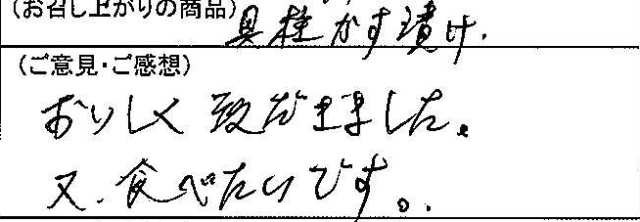 (お召し上がりの商品) 貝柱かす漬け.
(ご意見・ご感想)
おいしく頂だきました。
又、食べたいです。.